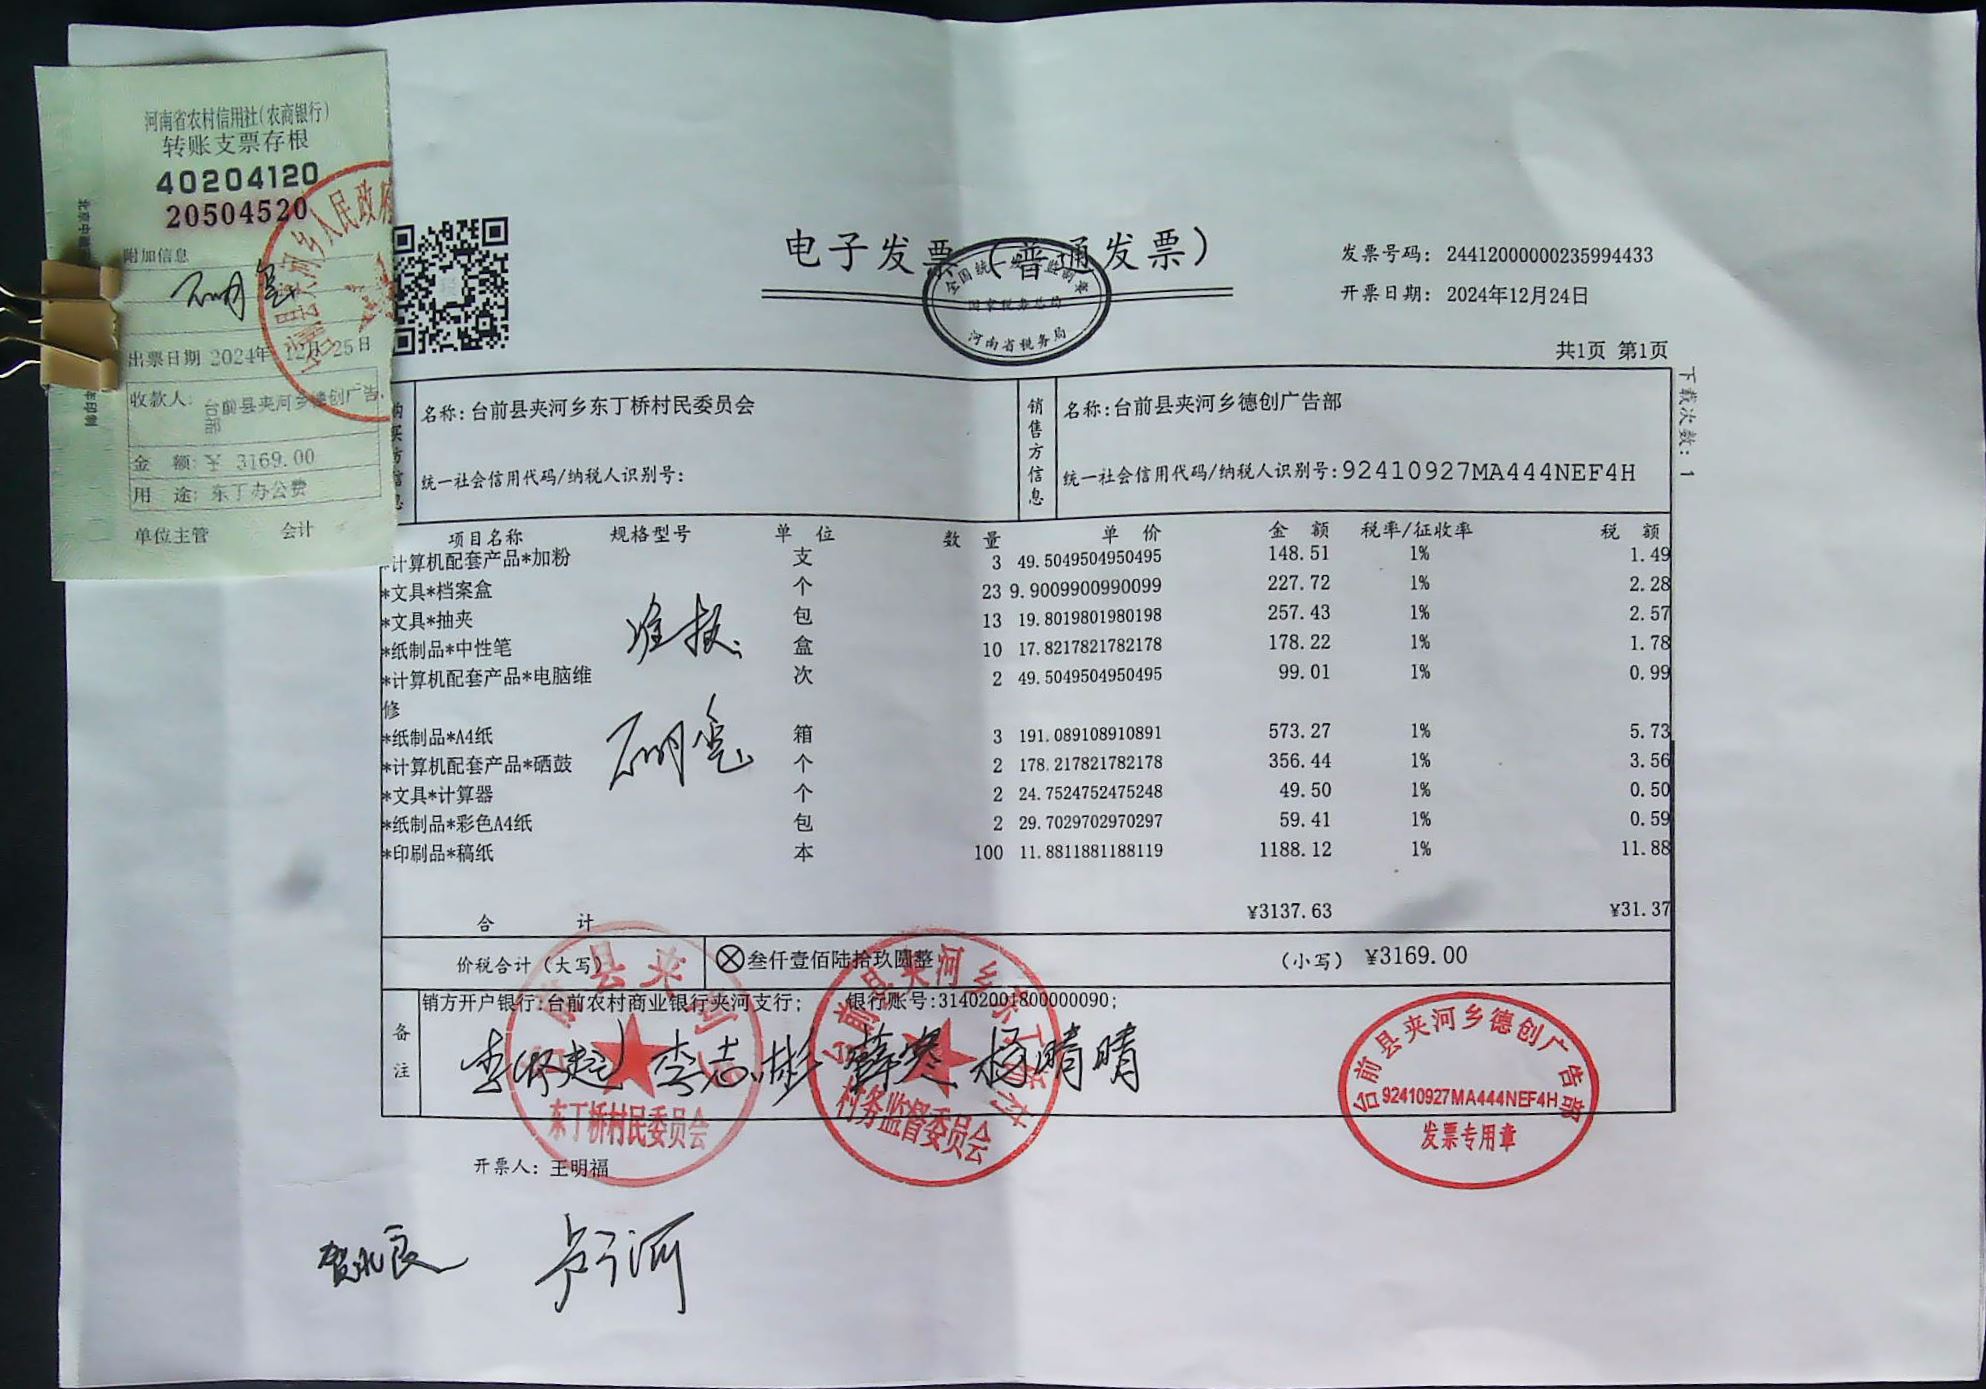 河南省农村信用社(农商银行)
转账支票存根
40204120
20504520
附加信息
出票日期 2024年 12月 25日
收款人: 台前县夹河乡德创广告部
金 额: ¥ 3169.00
用 途: 东丁办公费
单位主管 会计
电子发票(普通发票)
全国统一发票监制章
国家税务总局
河南省税务局
发票号码: 24412000000235994433
开票日期: 2024年12月24日
共1页 第1页
下载次数: 1
购买方信息
名称: 台前县夹河乡东丁桥村民委员会
统一社会信用代码/纳税人识别号:
销售方信息
名称: 台前县夹河乡德创广告部
统一社会信用代码/纳税人识别号: 92410927MA444NEF4H
项目名称 规格型号 单 位 数 量 单 价 金 额 税率/征收率 税 额
*计算机配套产品*加粉 支 3 49.5049504950495 148.51 1% 1.49
*文具*档案盒 个 23 9.9009900990099 227.72 1% 2.28
*文具*抽夹 包 13 19.8019801980198 257.43 1% 2.57
*纸制品*中性笔 盒 10 17.8217821782178 178.22 1% 1.78
*计算机配套产品*电脑维 次 2 49.5049504950495 99.01 1% 0.99
修
*纸制品*A4纸 箱 3 191.089108910891 573.27 1% 5.73
*计算机配套产品*硒鼓 个 2 178.217821782178 356.44 1% 3.56
*文具*计算器 个 2 24.7524752475248 49.50 1% 0.50
*纸制品*彩色A4纸 包 2 29.7029702970297 59.41 1% 0.59
*印刷品*稿纸 本 100 11.8811881188119 1188.12 1% 11.88
准报
合 计 ¥3137.63 ¥31.37
价税合计(大写) ⊗叁仟壹佰陆拾玖圆整 (小写) ¥3169.00
备注
销方开户银行:台前农村商业银行夹河支行; 银行账号:31402001800000090;
李志彬 薛寒 杨晴晴
东丁桥村民委员会
台前县夹河乡东丁桥村
村务监督委员会
台前县夹河乡德创广告部
92410927MA444NEF4H
发票专用章
开票人: 王明福
贺永良 卢行河